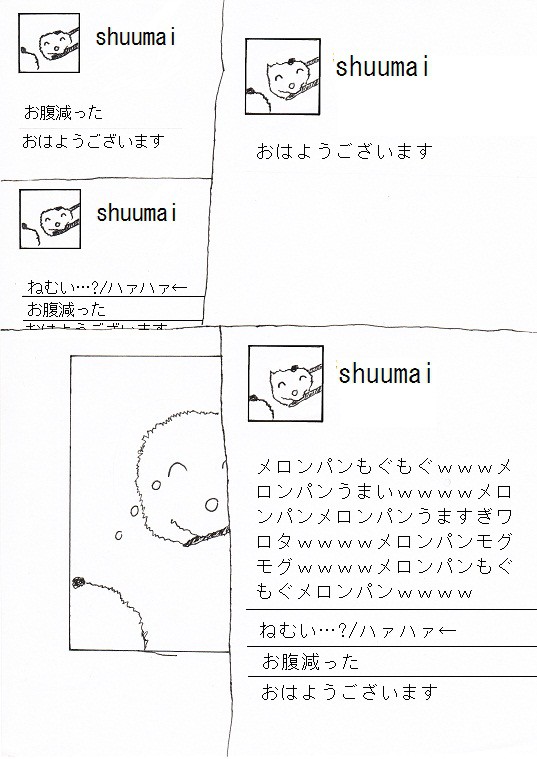 shuumai
おはようございます
shuumai
お腹減った
おはようございます
shuumai
ねむい…?/ハァハァ←
お腹減った
おはようございます
shuumai
メロンパンもぐもぐｗｗｗメ
ロンパンうまいｗｗｗｗメロ
ンパンメロンパンうますぎワ
ロタｗｗｗｗメロンパンモグ
モグｗｗｗｗメロンパンもぐ
もぐメロンパンｗｗｗｗ
ねむい…?/ハァハァ←
お腹減った
おはようございます